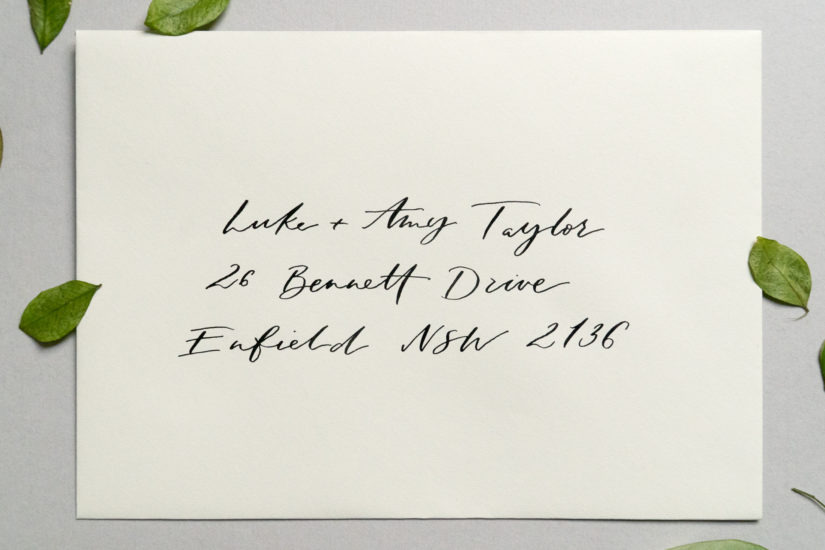 Luke + Amy Taylor
26 Bennett Drive
Enfield NSW 2136